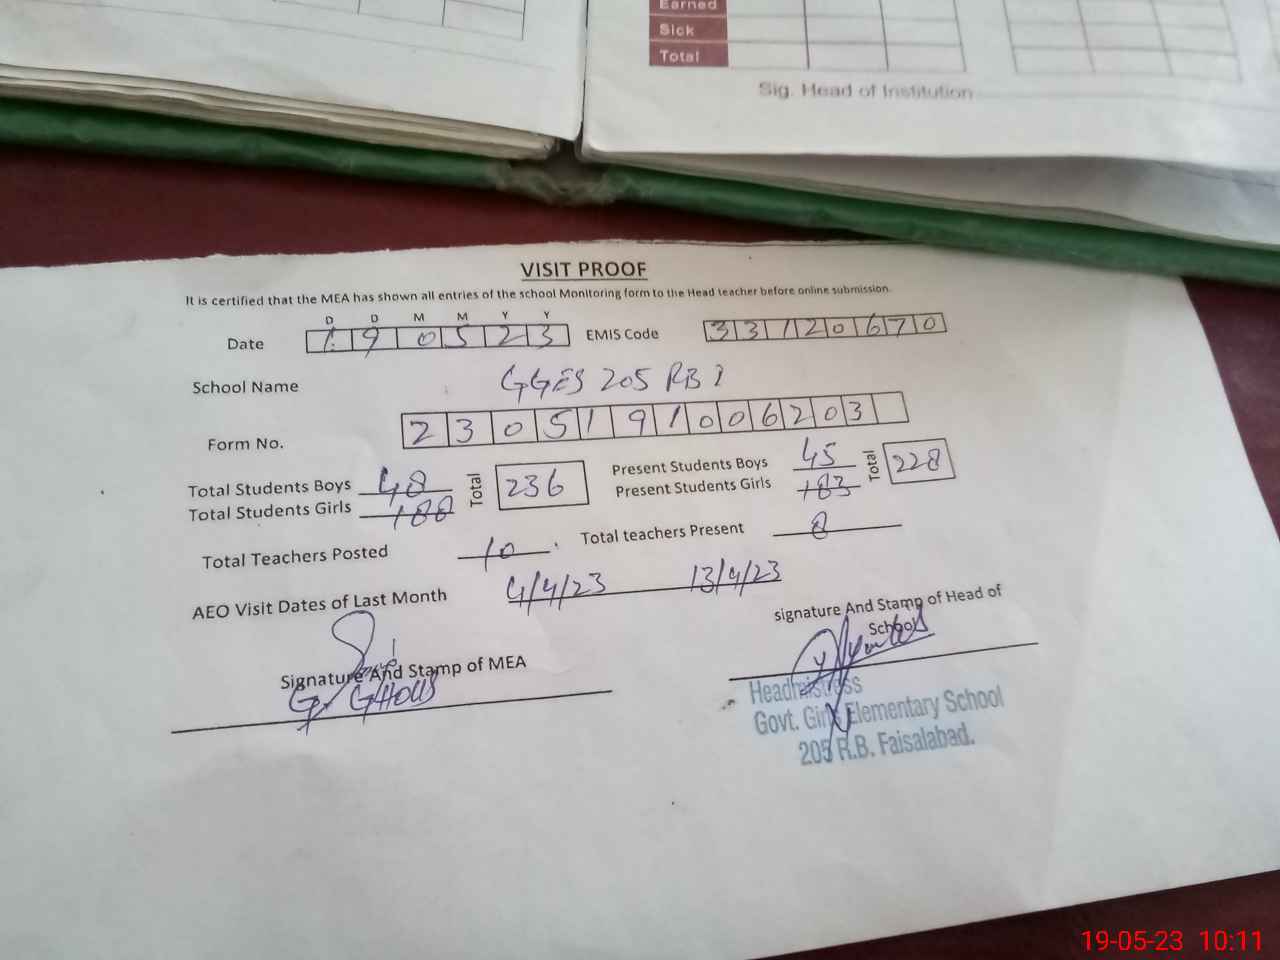 Earned
Sick
Total
Sig. Head of Institution
VISIT PROOF
It is certified that the MEA has shown all entries of the school Monitoring form to the Head teacher before online submission.
D D M M Y Y
Date 1 9 0 5 2 3 EMIS Code 3 3 1 2 0 6 7 0
School Name GGES 205 RB
Form No. 2 3 0 5 1 9 1 0 0 6 2 0 3
Total Students Boys 48 Total 236 Present Students Boys 45 Total 228
Total Students Girls 188 Present Students Girls 183
Total Teachers Posted 10 Total teachers Present 8
AEO Visit Dates of Last Month 4/4/23 13/4/23
Signature And Stamp of MEA
signature And Stamp of Head of School
Headmistress
Govt. Girls Elementary School
205 R.B. Faisalabad.
19-05-23 10:11